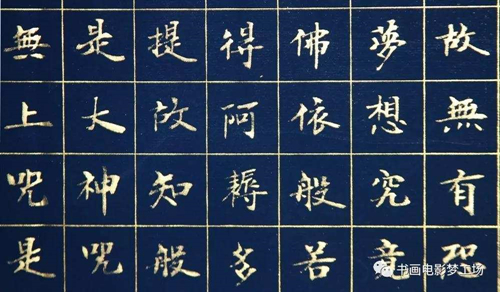 故無有恐
夢想究竟
佛依般若
得阿耨多
提故知般
是大神咒
無上咒是
书画电影梦工场